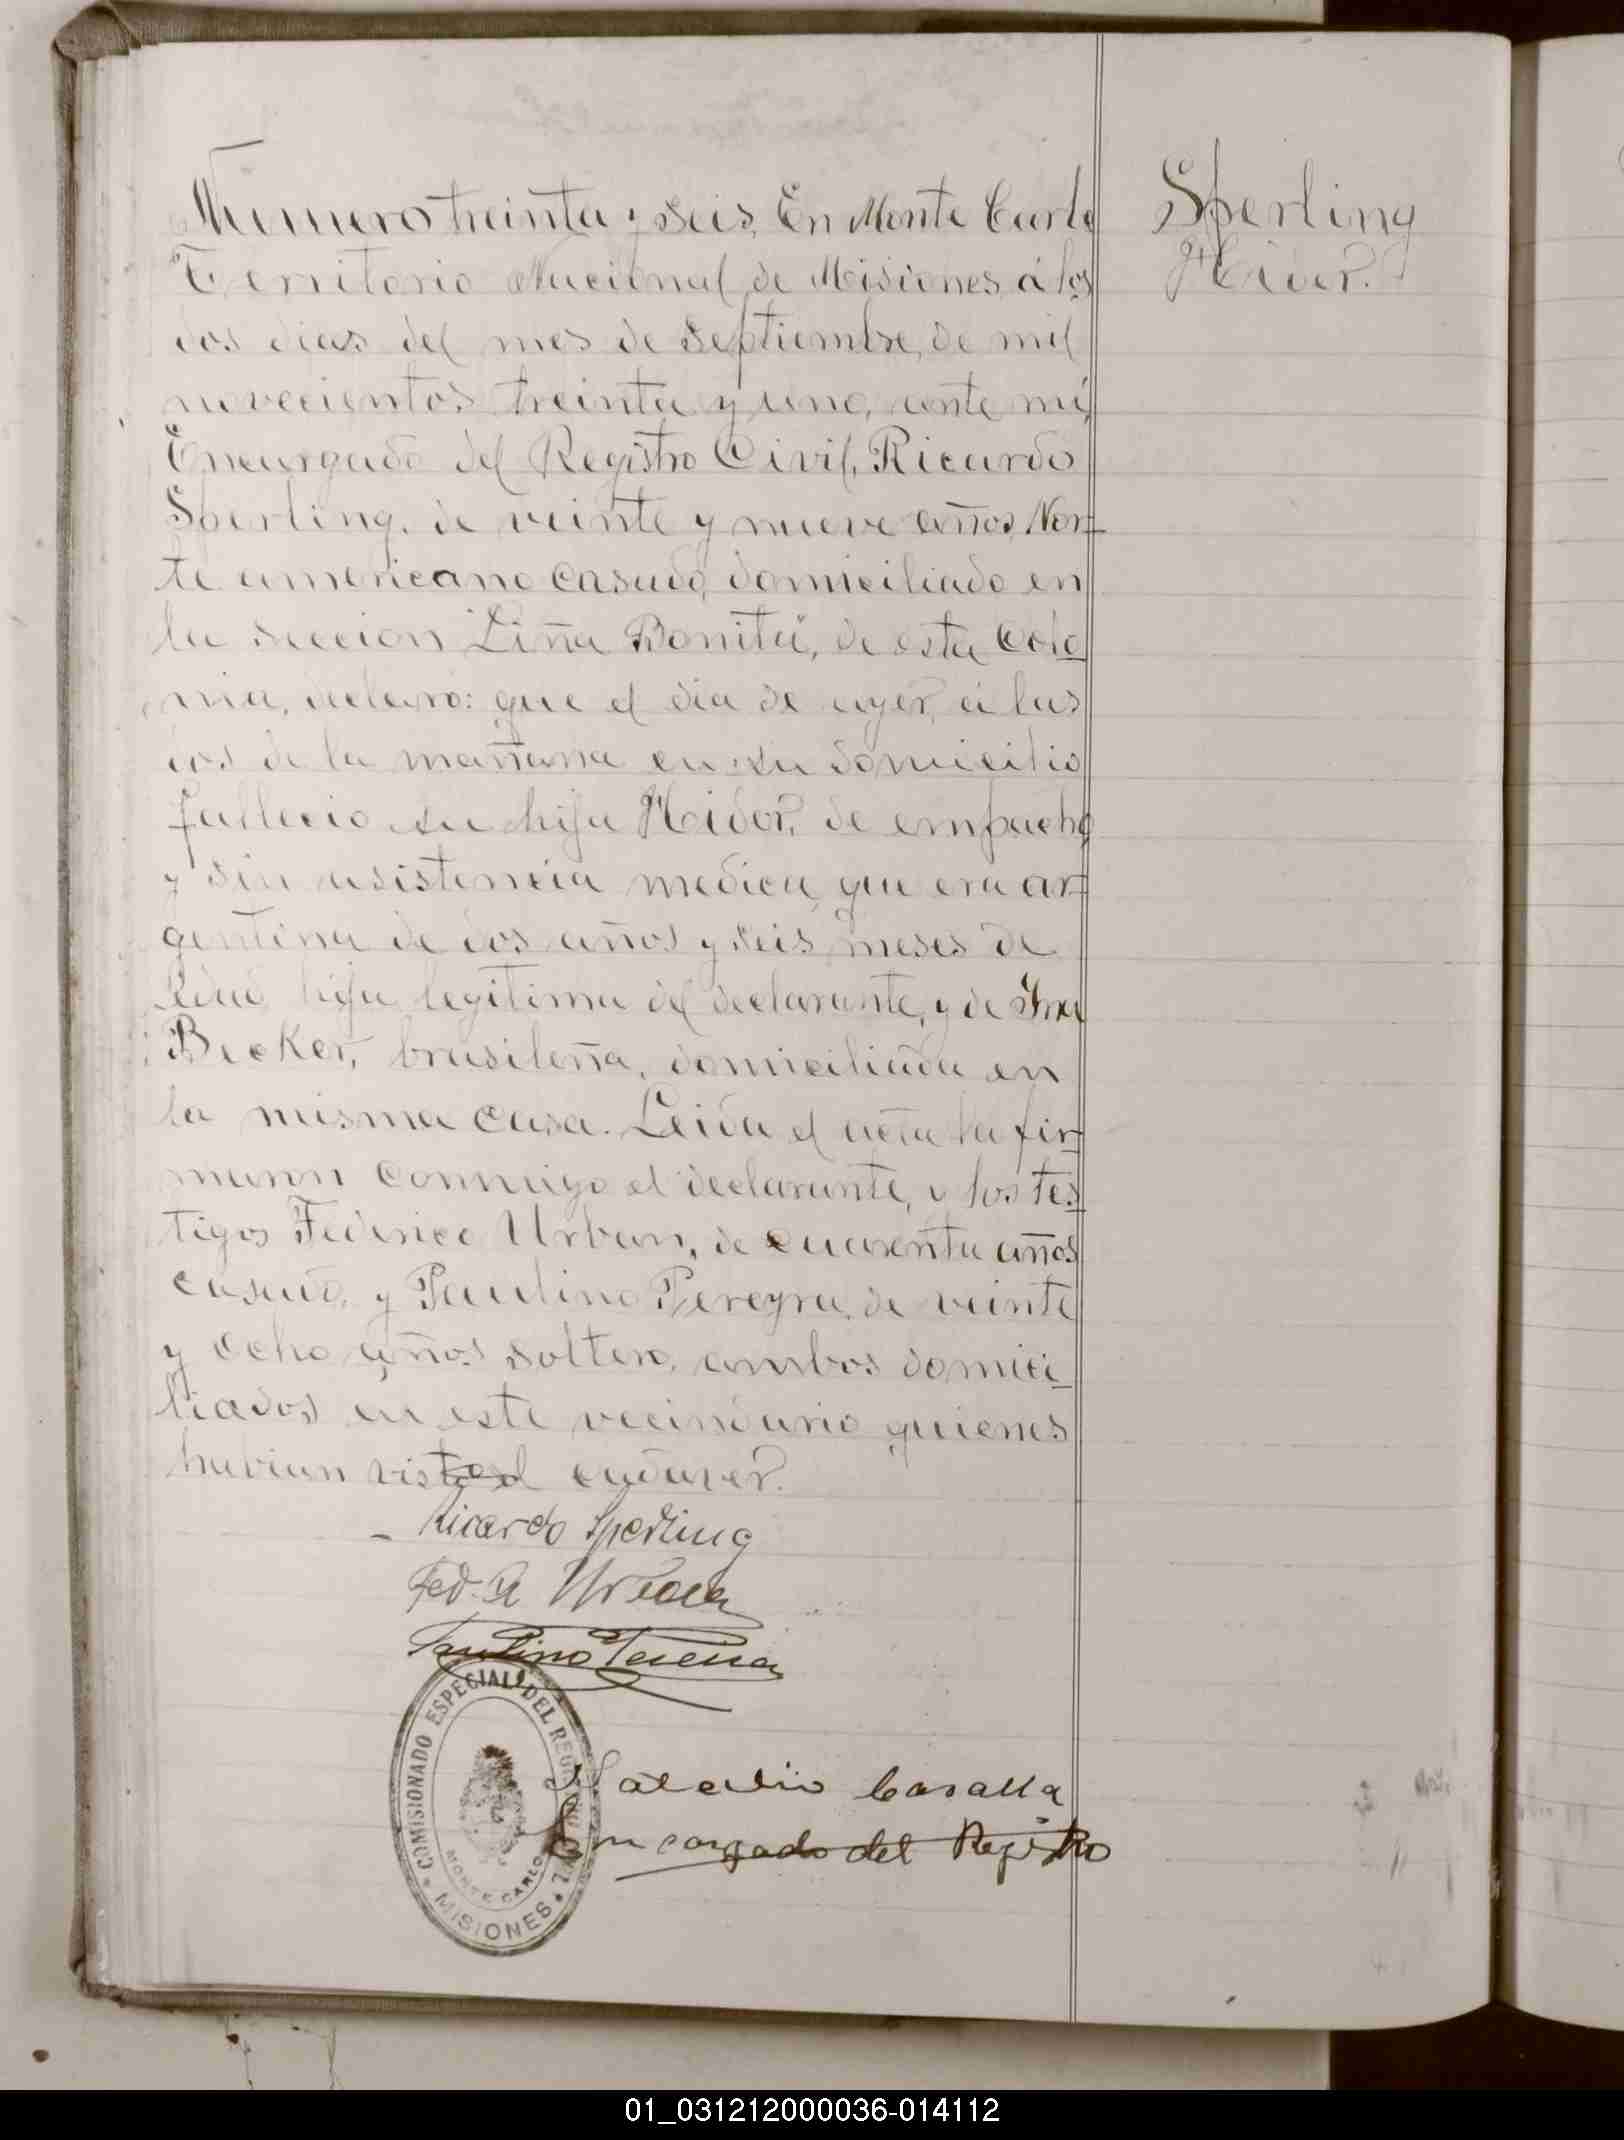 Numero treinta y seis, En Monte Carlo
Territorio Nacional de Misiones, á los
dos dias del mes de septiembre, de mil
novecientos treinta y uno, ante mi,
Encargado del Registro Civil, Ricardo
Sperling, de veinte y nueve años, Nor-
te americano casado, domiciliado en
la seccion Liña Bonita, de esta Colo-
nia, declaró: que el dia de ayer, á las
dos de la mañana en su domicilio
fallecio su hija Hidor, de empacho,
y sin asistencia medica, que era ar-
gentina de dos años y seis meses de
edad hija legitima del declarante, y de
Becker, brasileña, domiciliada en
la misma casa. Leida el acta la fir-
maron conmigo el declarante, y los tes-
tigos Federico Urban, de cuarenta años
casado, y Paulino Pereyra, de veinte
y ocho años soltero, ambos domici-
liados en este vecindario quienes
havian visto el cadaver.
Sperling
Hidor.
Ricardo Sperling
Fed. Urban
Paulino Pereira
COMISIONADO ESPECIAL DEL REGISTRO CIVIL
MONTE CARLO
MISIONES
Casalla
Encargado del Registro
01_031212000036-014112